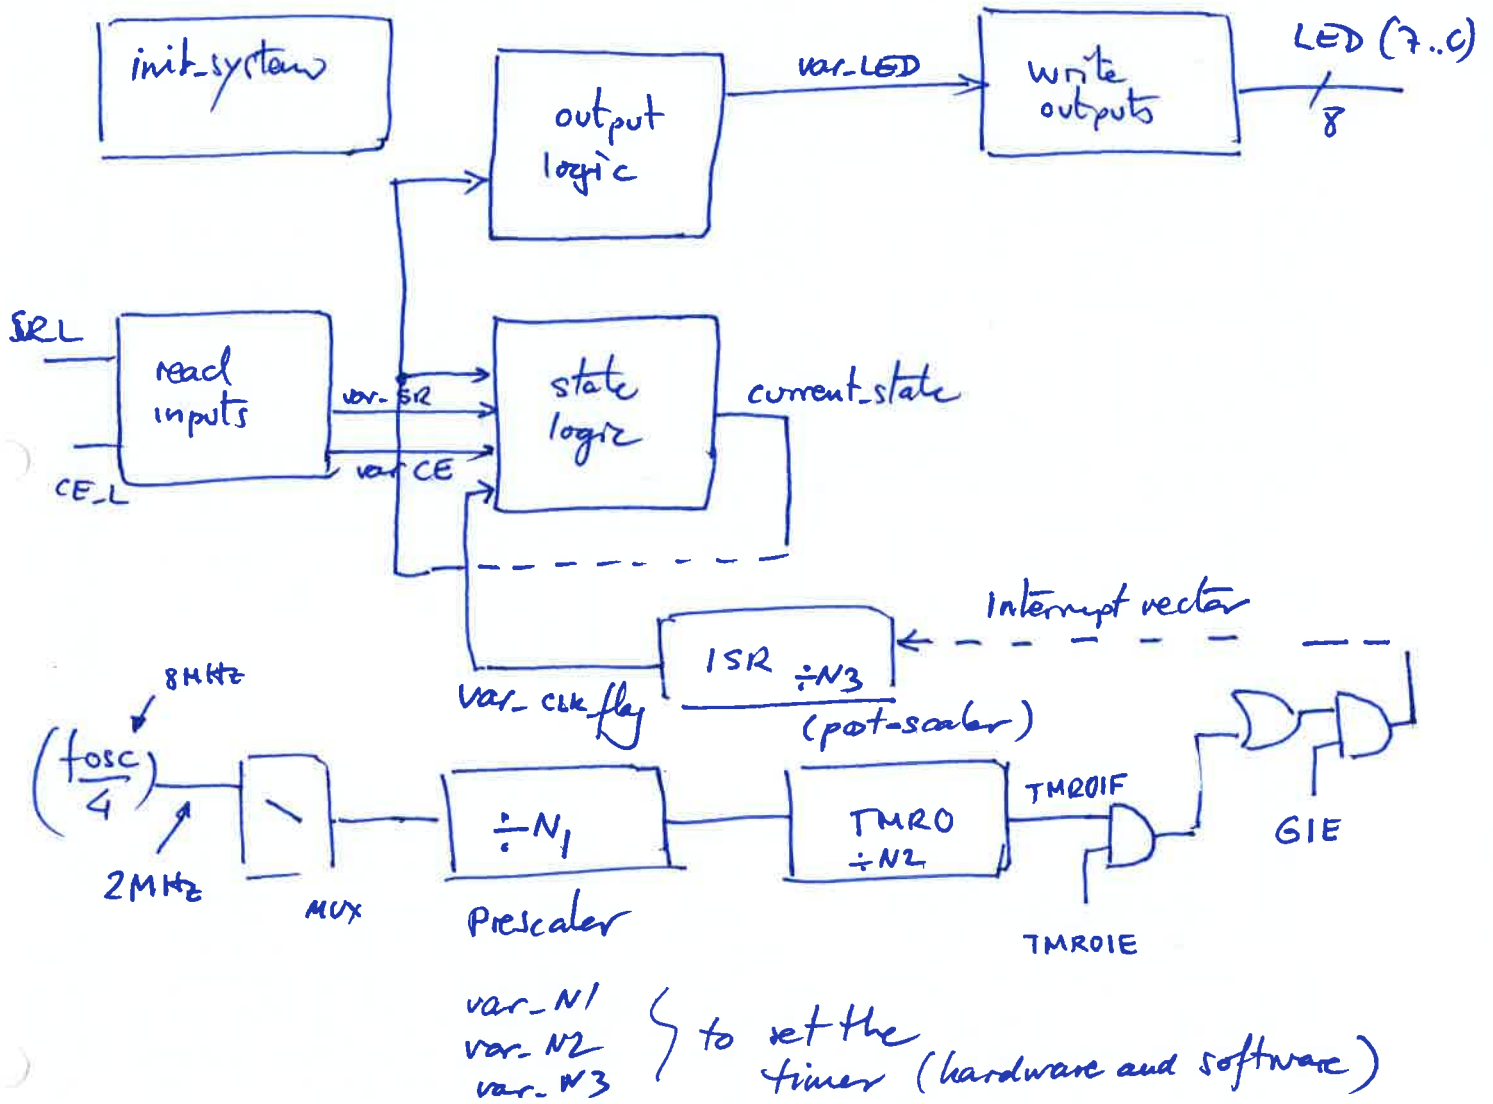 init_system
output
logic
var_LED
write
outputs
LED (7..0)
8
SR_L
CE_L
read
inputs
var_SR
var_CE
state
logic
current_state
Interrupt vector
ISR ÷N3
(post-scaler)
var_CLK_flag
8MHz
(fosc/4)
2MHz
MUX
÷N1
Prescaler
TMR0
÷N2
TMR0IF
TMR0IE
GIE
var_N1
var_N2
var_N3
to set the
timer (hardware and software)